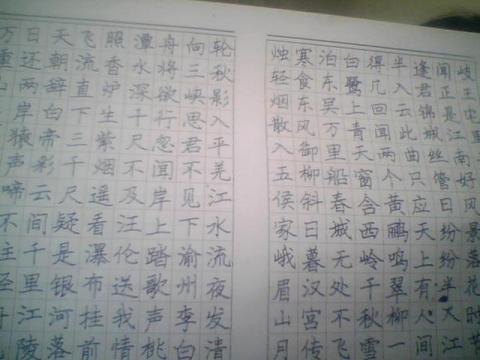 岐王宅里
闻正是江南好风景落花时
逢君锦城丝管日纷纷半入江
半入云此曲只应天上有人间
得几回闻两个黄鹂鸣翠柳一
白鹭上青天窗含西岭千秋雪
泊东吴万里船春城无处不飞
寒食东风御柳斜日暮汉宫传
烛轻烟散入五侯家峨眉山月
轮秋影入平羌江水流夜发清
向三峡思君不见下渝州李白
舟将欲行忽闻岸上踏歌声桃
潭水深千尺不及汪伦送我情
照香炉生紫烟遥看瀑布挂前
飞流直下三千尺疑是银河落
天朝辞白帝彩云间千里江陵
日还两岸猿声啼不住轻舟
万重